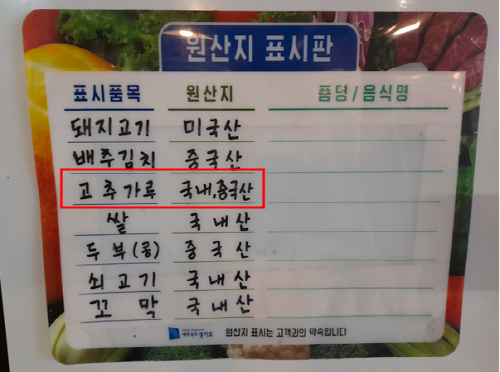 원산지 표시판
표시품목 원산지 품명/음식명
돼지고기 미국산
배추김치 중국산
고추가루 국내,중국산
쌀 국내산
두부(콩) 중국산
쇠고기 국내산
꼬막 국내산
경기도 원산지 표시는 고객과의 약속입니다